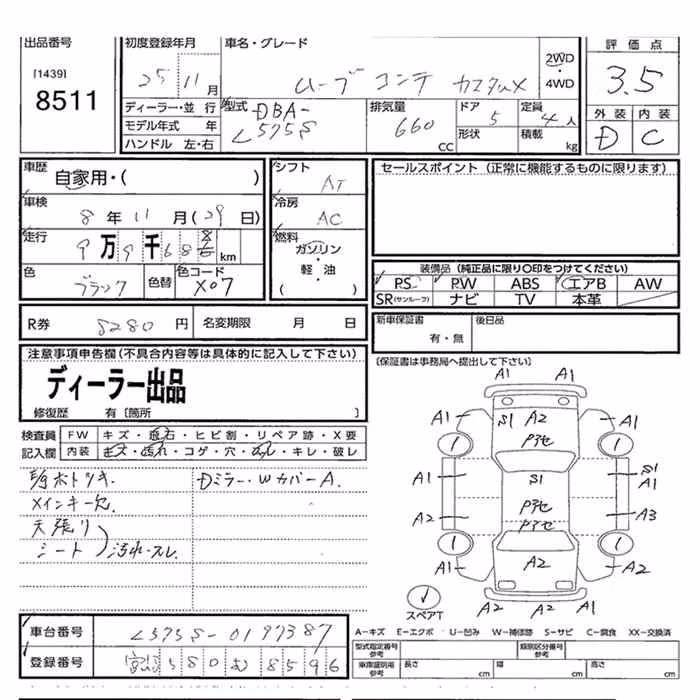 出品番号
[1439]
8511
初度登録年月
25 11月
車名・グレード
ムーブ コンテ カスタムX
2WD
・
4WD
評価点
3.5
ディーラー・並行
モデル年式 年
ハンドル 左・右
型式
DBA-
L575S
排気量
660
CC
ドア
5
形状
定員
4人
積載
kg
外装 内装
D C
車歴
自家用・( )
シフト
AT
車検
8年 11月(29日)
冷房
AC
走行
9万9千688km
燃料
ガソリン
・
軽・油
( )
色
ブラック
色替
色コード
X07
セールスポイント (正常に機能するものに限ります)
装備品 (純正品に限り○印をつけてください)
PS P.W ABS エアB AW
SR(サンルーフ) ナビ TV 本革
R券 8280円 名変期限 月 日
新車保証書
有・無
後日品
(保証書は事務局へ提出して下さい)
注意事項申告欄(不具合内容等は具体的に記入して下さい)
ディーラー出品
修復歴 有 [箇所 ]
検査員
記入欄
FW キズ・飛石・ヒビ割・リペア跡・X要
内装 キズ・汚れ・コゲ・穴・スレ・キレ・破レ
Dミラー・WカバーA.
メインキー欠.
天張り
シート 汚れ・スレ
A1 A1
A1 S1 A2 A1
Pアセ
A1 S1 S1
A1
Pアセ
A2 Pアセ A3
A1 A2 A1
A2 A2
スペアT
車台番号 L575S-0197387
登録番号 宮城580む8596
A-キズ E-エクボ U-凹み W-補修跡 S-サビ C-腐食 XX-交換済
型式指定番号
参考
類別区分番号
参考
車庫証明用
参考
長さ cm 幅 cm 高さ cm